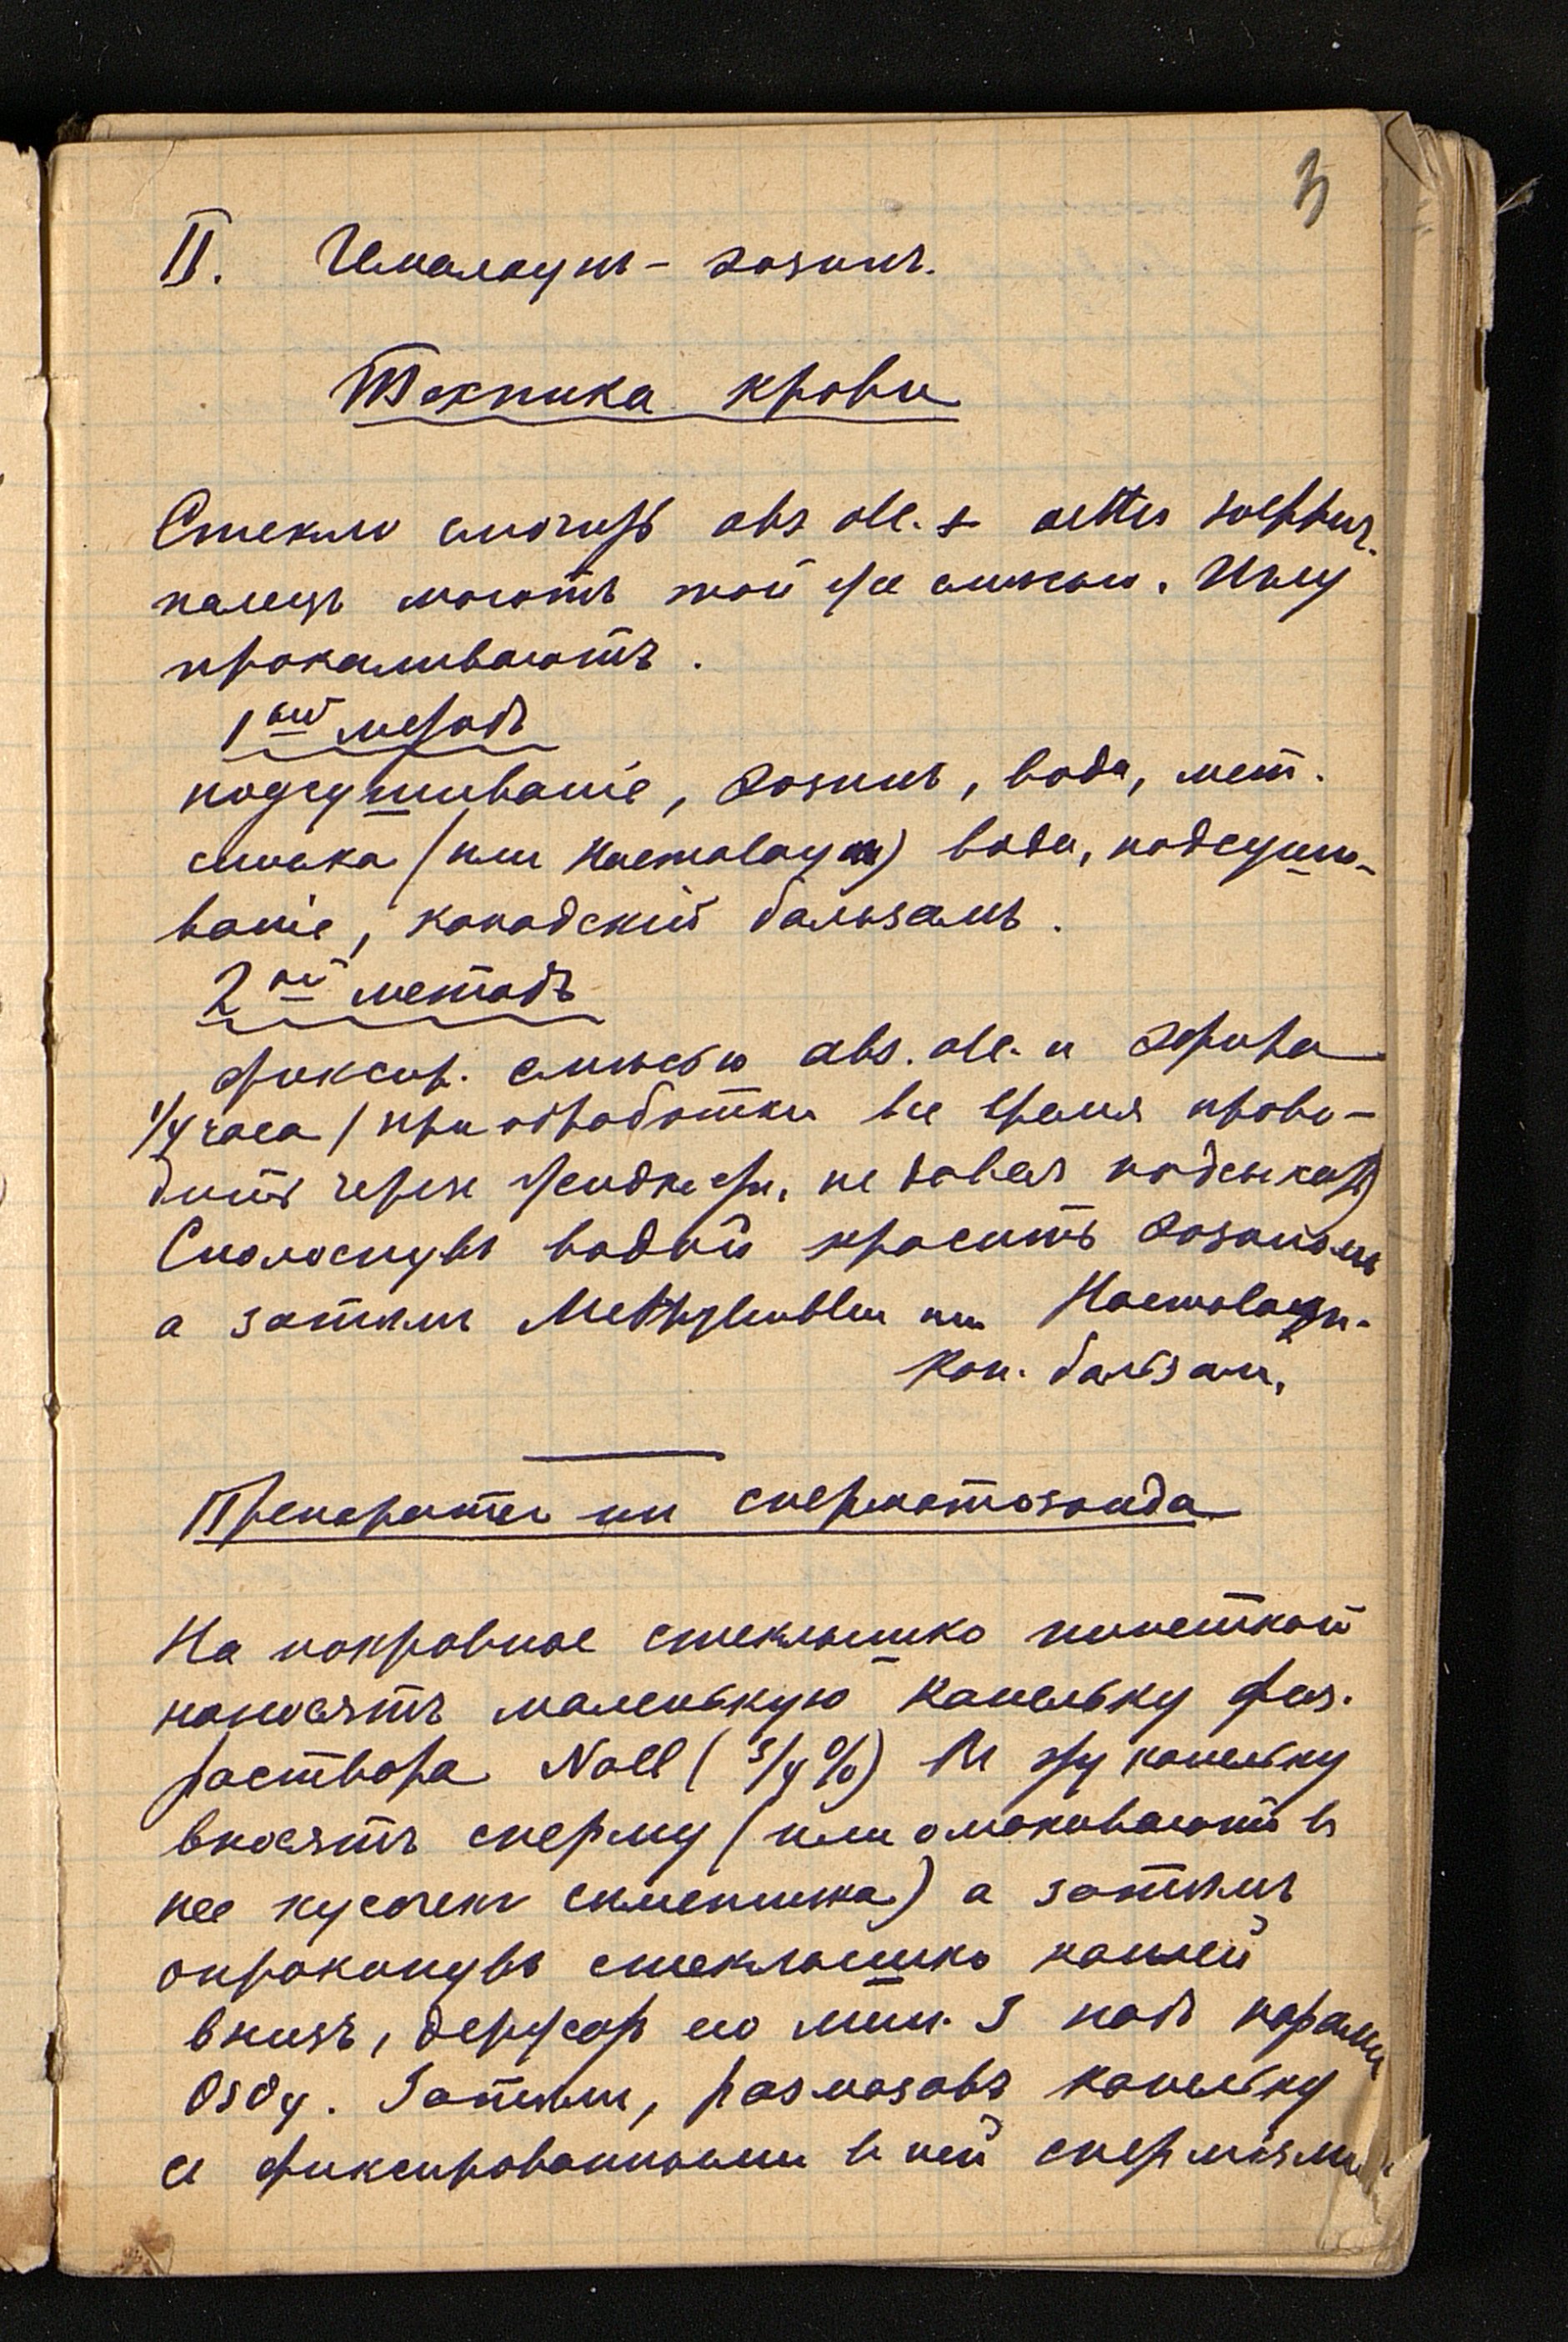 3
II. Гемалаун – эозинъ.
Техника крови
Стекло смочить abs alc. + aether sulphur.
палецъ моютъ той же смѣсью. Иглу
прокаливаютъ.
1ый методъ
подсушиваніе, эозинъ, вода, мет.
синька (или Haemalaун) вода, подсуши-
ваніе, канадскій бальзамъ.
2ой методъ
фиксир. смѣсью abs. alc. и эфира
1/4 часа (при обработки все время прово-
дить через жидкости, не давая подсыхать)
Сполоснувъ водой красить эозиномъ
а затѣмъ Methylenblau или Haemalaун.
Кан. бальзам.
Препараты из сперматозоида
На покровное стеклышко пипеткой
наносятъ маленькую капельку физ.
раствора NaCl (3/4%) В эту капельку
вносятъ сперму (или омакиваютъ въ
нее кусочекъ сѣменника) а затѣмъ
опрокинувъ стеклышко каплей
внизъ, держат его мин. 3 надъ парами
OsO4. Затѣмъ, размазавъ капельку
съ фиксированными в ней сперміями